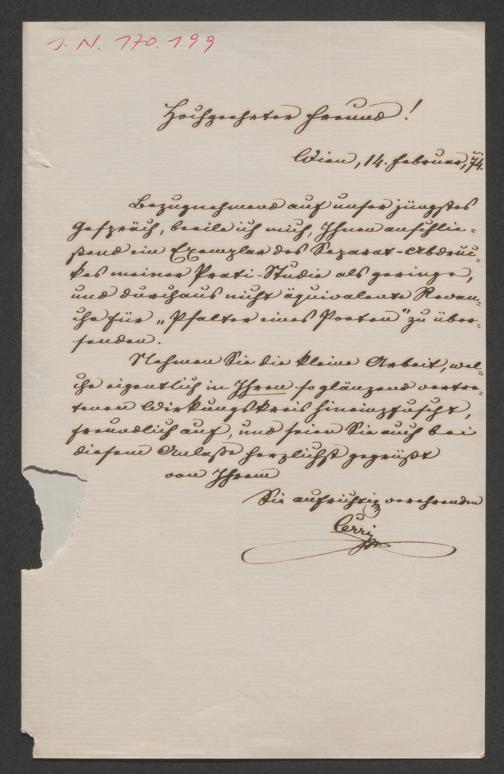 I. N. 170.199
Hochgeehrter Freund!
Wien, 14. Februar, 74.
Bezugnehmend auf unser jüngstes
Gespräch, beeile ich mich, Ihnen anschlie-
ßend ein Exemplar des Separat-Abdruc-
kes meiner Prati-Studie als geringe,
und durchaus nicht äquivalente Revan-
che für „Psalter eines Poeten" zu über-
senden.
Nehmen Sie die kleine Arbeit, wel-
che eigentlich in Ihrem so glänzend vertre-
tenen Wirkungskreis hineinpfuscht,
freundlich auf, und seien Sie auch bei
diesem Anlaße herzlichst gegrüßt
von Ihrem
Sie aufrichtig verehrenden
Cerri